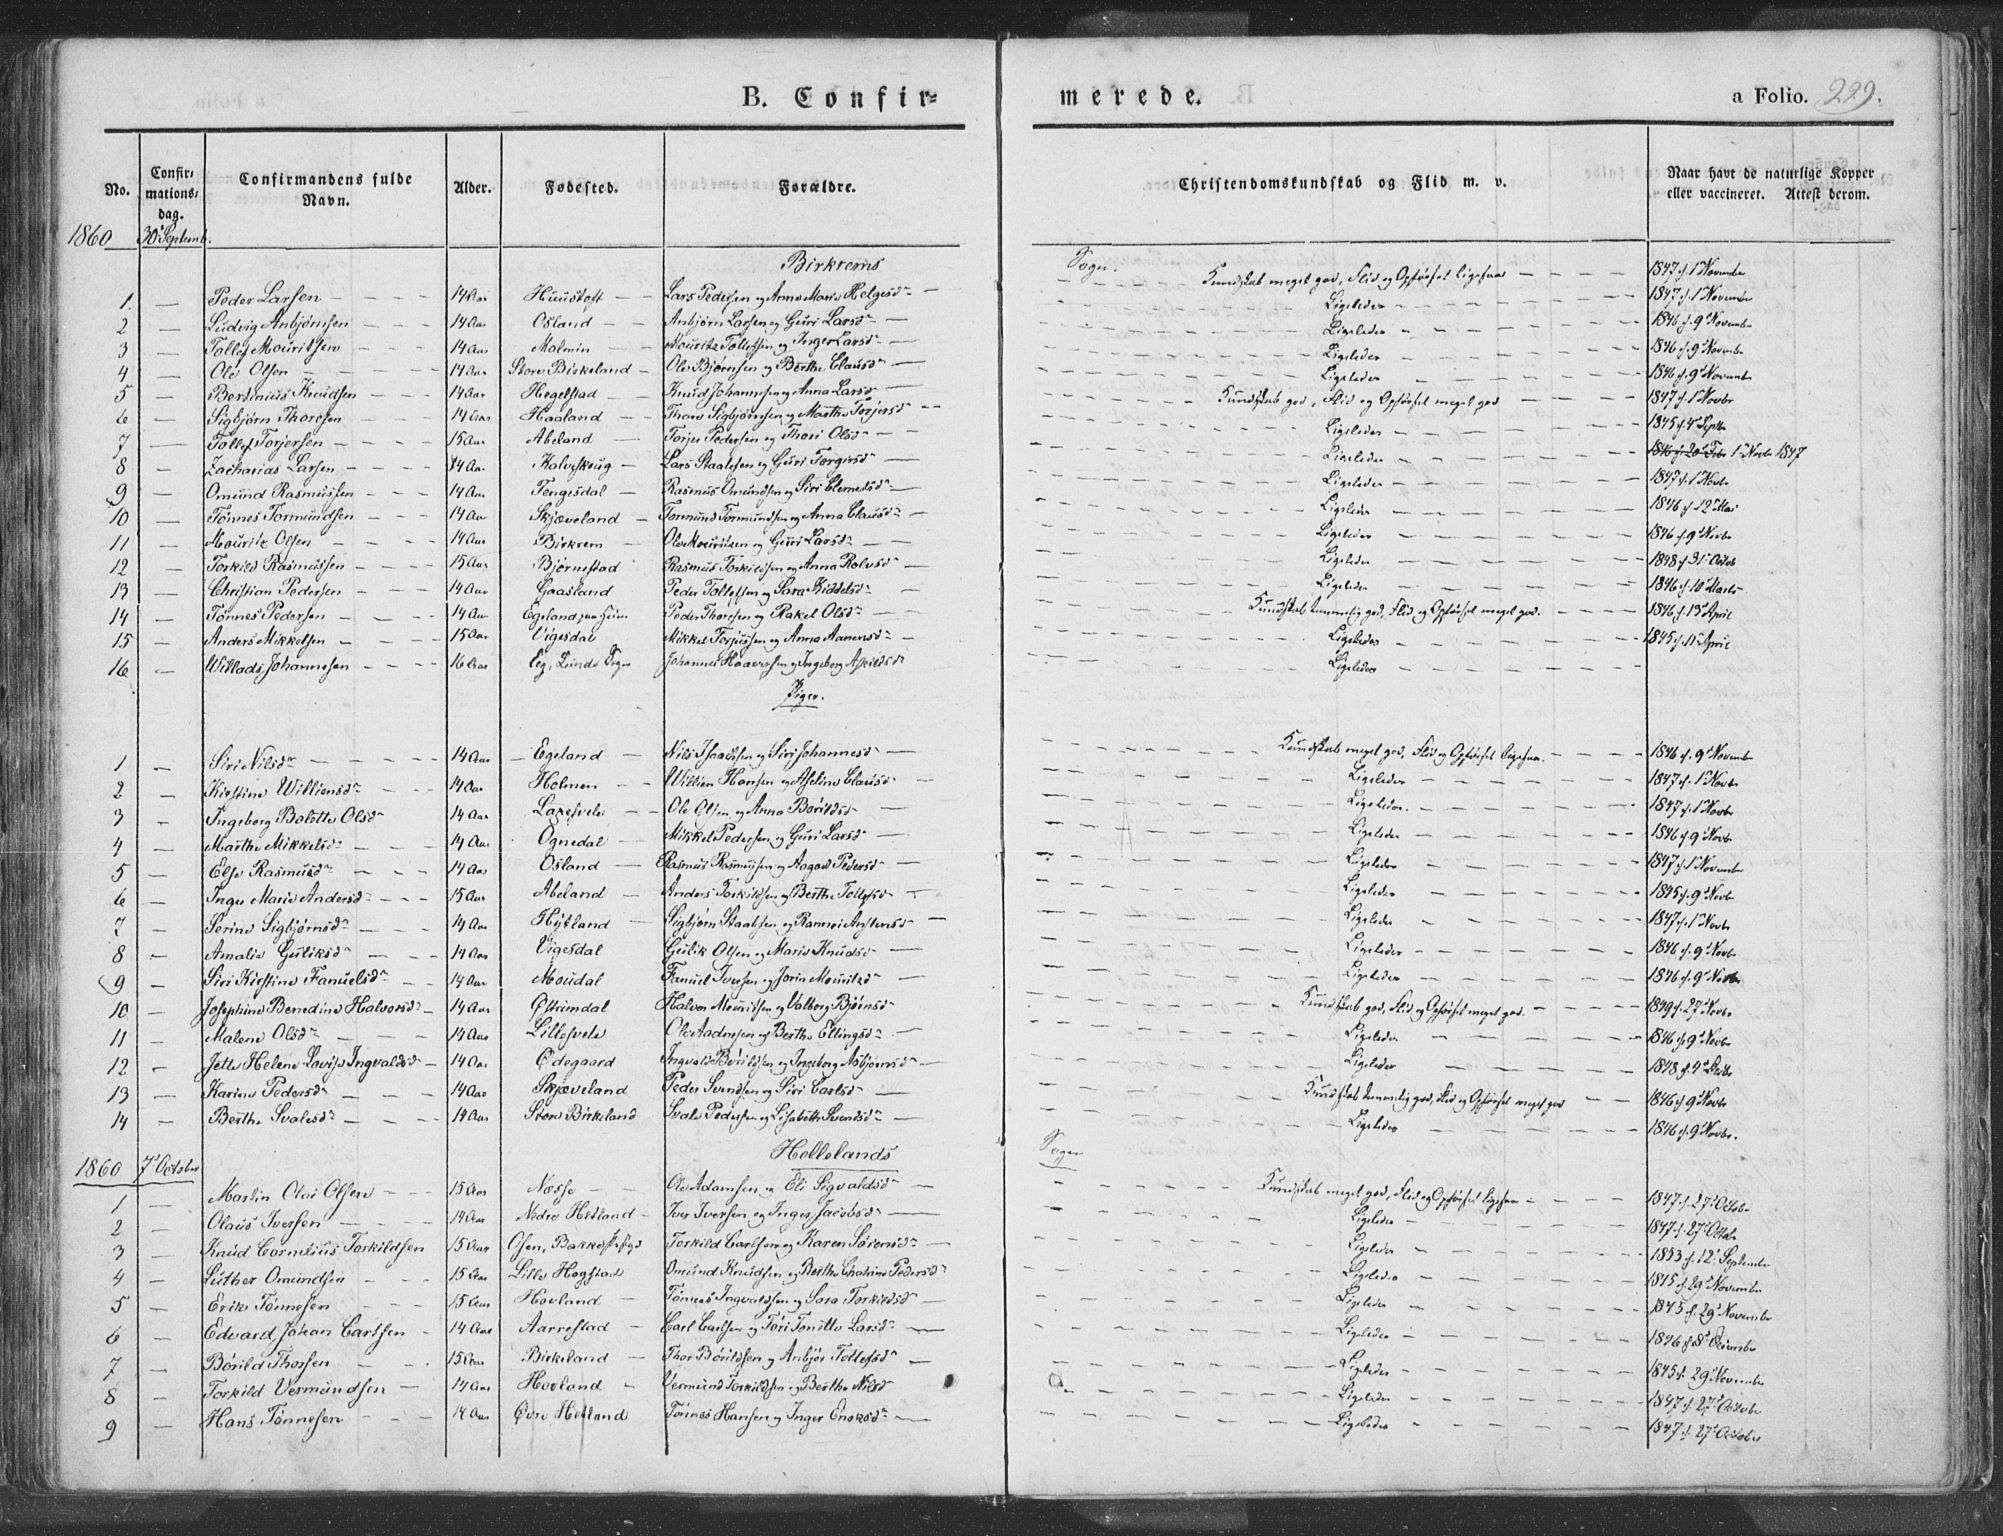 B. Confir= merede. a Folio. 229.
No. Confir= mations= dag. Confirmandens fulde Navn. Alder. Fødested. Forældre. Christendomskundskab og Flid m. v. Naar havt de naturlige Kopper eller vaccineret. Attest derom.
1860 30 Septemb.
Birkrems Sogn.
1 — Peder Larsen 14 Aar Lars Pedersen og Anne Marie Helgesd Kundskab meget god, Flid og Opførsel ligesaa 1847 1 Novembr
2 — Ludvig Anbjørnsen 14 Aar Osland Anbjørn Larsen og Guri Larsd Ligeledes 1847 1 Novembr
3 — Tollef Mouritsen 14 Aar Malmin Mouritz Tollefsen og Inger Larsd Ligeledes 1846 9 Novembr
4 — Ole Olsen 14 Aar Store Birkeland Ole Bjørnsen og Berthe Clausd Ligeledes 1846 9 Novembr
5 — Bertinius Knudsen 14 Aar Hegelstad Knud Johannesen og Anna Larsd Ligeledes 1846 9 Novembr
6 — Sigbjørn Thoresen 14 Aar Haaland Thore Sigbjørnsen og Marthe Torjersd Kundskab god, Flid og Opførsel meget god 1847 1 Novbr
7 — Tollef Torjersen 15 Aar Abeland Torjer Pedersen og Thori Olsd Ligeledes 1845 4 Septbr
8 — Zacharias Larsen 14 Aar Kalveskoug Lars Staalesen og Guri Torgersd Ligeledes 1 Novbr 1847
9 — Omund Rasmussen 14 Aar Tengesdal Rasmus Omundsen og Siri Clemedsd Ligeledes 1847 1 Novbr
10 — Tønnes Tormundsen 14 Aar Skjæveland Tormund Tormundsen og Anna Clausd Ligeledes 1846 12 Mai
11 — Mouritz Olsen 14 Aar Birkrem Ole Mouritzen og Guri Larsd Ligeledes 1846 9 Novbr
12 — Torkild Rasmussen 15 Aar Bjørnestad Rasmus Torkildsen og Anna Rolvsd Ligeledes 1848 31 Octob
13 — Christian Pedersen 14 Aar Gaasland Peder Tollefsen og Sara Kiddelsd Ligeledes 1846 10 Marts
14 — Tønnes Pedersen 14 Aar Egeland paa Heien Peder Thoresen og Rakel Olsd Kundskab temmelig god, Flid og Opførsel meget god. 1846 13 April
15 — Anders Mikkelsen 15 Aar Vigesdal Mikkel Torjussen og Anna Aanensd Ligeledes 1845 11 April
16 — Willads Johannesen 16 Aar Eeg, Lunde Sogn Johannes Haaversen og Ingeborg Askildsd Ligeledes
Piger.
1 — Siri Nilsd 14 Aar Egeland Nils Isaachsen og Siri Johannesd Kundskab meget god, Flid og Opførsel ligesaa. 1846 9 Novembr
2 — Kirstine Williensd 14 Aar Holmen Willien Hansen og Aseline Clausd Ligeledes 1847 1 Novbr
3 — Ingeborg Bolette Olsd 14 Aar Laxesvele Ole Olsen og Anna Børildsd Ligeledes. 1847 1 Novbr
4 — Marthe Mikkelsd 14 Aar Ognedal Mikkel Pedersen og Guri Larsd Ligeledes 1846 9 Novbr
5 — Else Rasmusd 14 Aar Osland Rasmus Rasmussen og Aagod Pedersd Ligeledes 1847 1 Novembr
6 — Inger Marie Andersd 15 Aar Abeland Anders Torkildsen og Berthe Tollefsd Ligeledes 1845 9 Novbr
7 — Serine Sigbjørnsd 14 Aar Hytland Sigbjørn Staalesen og Rannei Aystensd Ligeledes 1847 1 Novbr
8 — Amalie Guliksd 14 Aar Vigesdal Gulik Olsen og Marie Knudsd Ligeledes 1846 9 Novbr
9 — Siri Kirstine Fanuelsd 14 Aar Moudal Fanuel Iversen og Jorin Mouritzd Ligeledes 1846 9 Novbr
10 — Josephine Benedine Halvorsd 14 Aar Østrumdal Halvor Mouritsen og Valborg Bjørnsd Kundskab god, Flid og Opførsel meget god. 1849 27 Novbr
11 — Malene Olsd 14 Aar Lillesvele Ole Aadnesen og Berthe Ellingsd Ligeledes 1846 9 Novbr
12 — Jette Helene Lovise Ingvaldsd 14 Aar Ødegaard Ingvald Børildsen og Ingeborg Asbjørnsd Ligeledes 1848 4
13 — Karine Pedersd 14 Aar Skjæveland Peder Svendsen og Siri Carlsd Kundskab temmelig god, Flid og Opførsel meget god 1846 9 Novbr
14 — Berthe Svalesd 14 Aar Store Birkeland Svale Pedersen og Lisabeth Svendsd Ligeledes 1846 9 Novbr.
1860 7 October
Hellelands Sogn
1 — Martin Olai Olsen 15 Aar Næsse Ole Adamsen og Eli Sigvaldsd Kundskab meget god, Flid og Opførsel ligesaa 1847 27 Octobr
2 — Olaus Iversen 14 Aar Nedre Hetland Iver Iversen og Inger Jacobsd Ligeledes 1847 27 Octobr
3 — Knud Cornelius Torkildsen 15 Aar Osen, Bakke Torkild Carlsen og Karen Sørensd Ligeledes 1853 12 Septembr
4 — Luther Omundsen 15 Aar Lille Hogstad Omund Knudsen og Berthe Chatrine Pedersd Ligeledes 1845 29 Novembr
5 — Erik Tønnesen 15 Aar Hovland Tønnes Ingvaldsen og Sara Torkildsd Ligeledes 1845 29 Novembr
6 — Edvard Johan Carlsen 14 Aar Aarrestad Carl Carlsen og Tøri Tonette Larsd Ligeledes 1846 8 Decembr
7 — Børild Thorsen 15 Aar Birkeland Thor Børildsen og Anbjør Tollefsd Ligeledes 1845 29 Novembr
8 — Torkild Vermundsen 14 Aar Hovland Vermund Torkildsen og Berthe Nilsd Ligeledes 1847 27 Octobr
9 — Hans Tønnesen 14 Aar Øvre Hetland Tønnes Hansen og Inger Enoksd Ligeledes 1847 27 Octobr